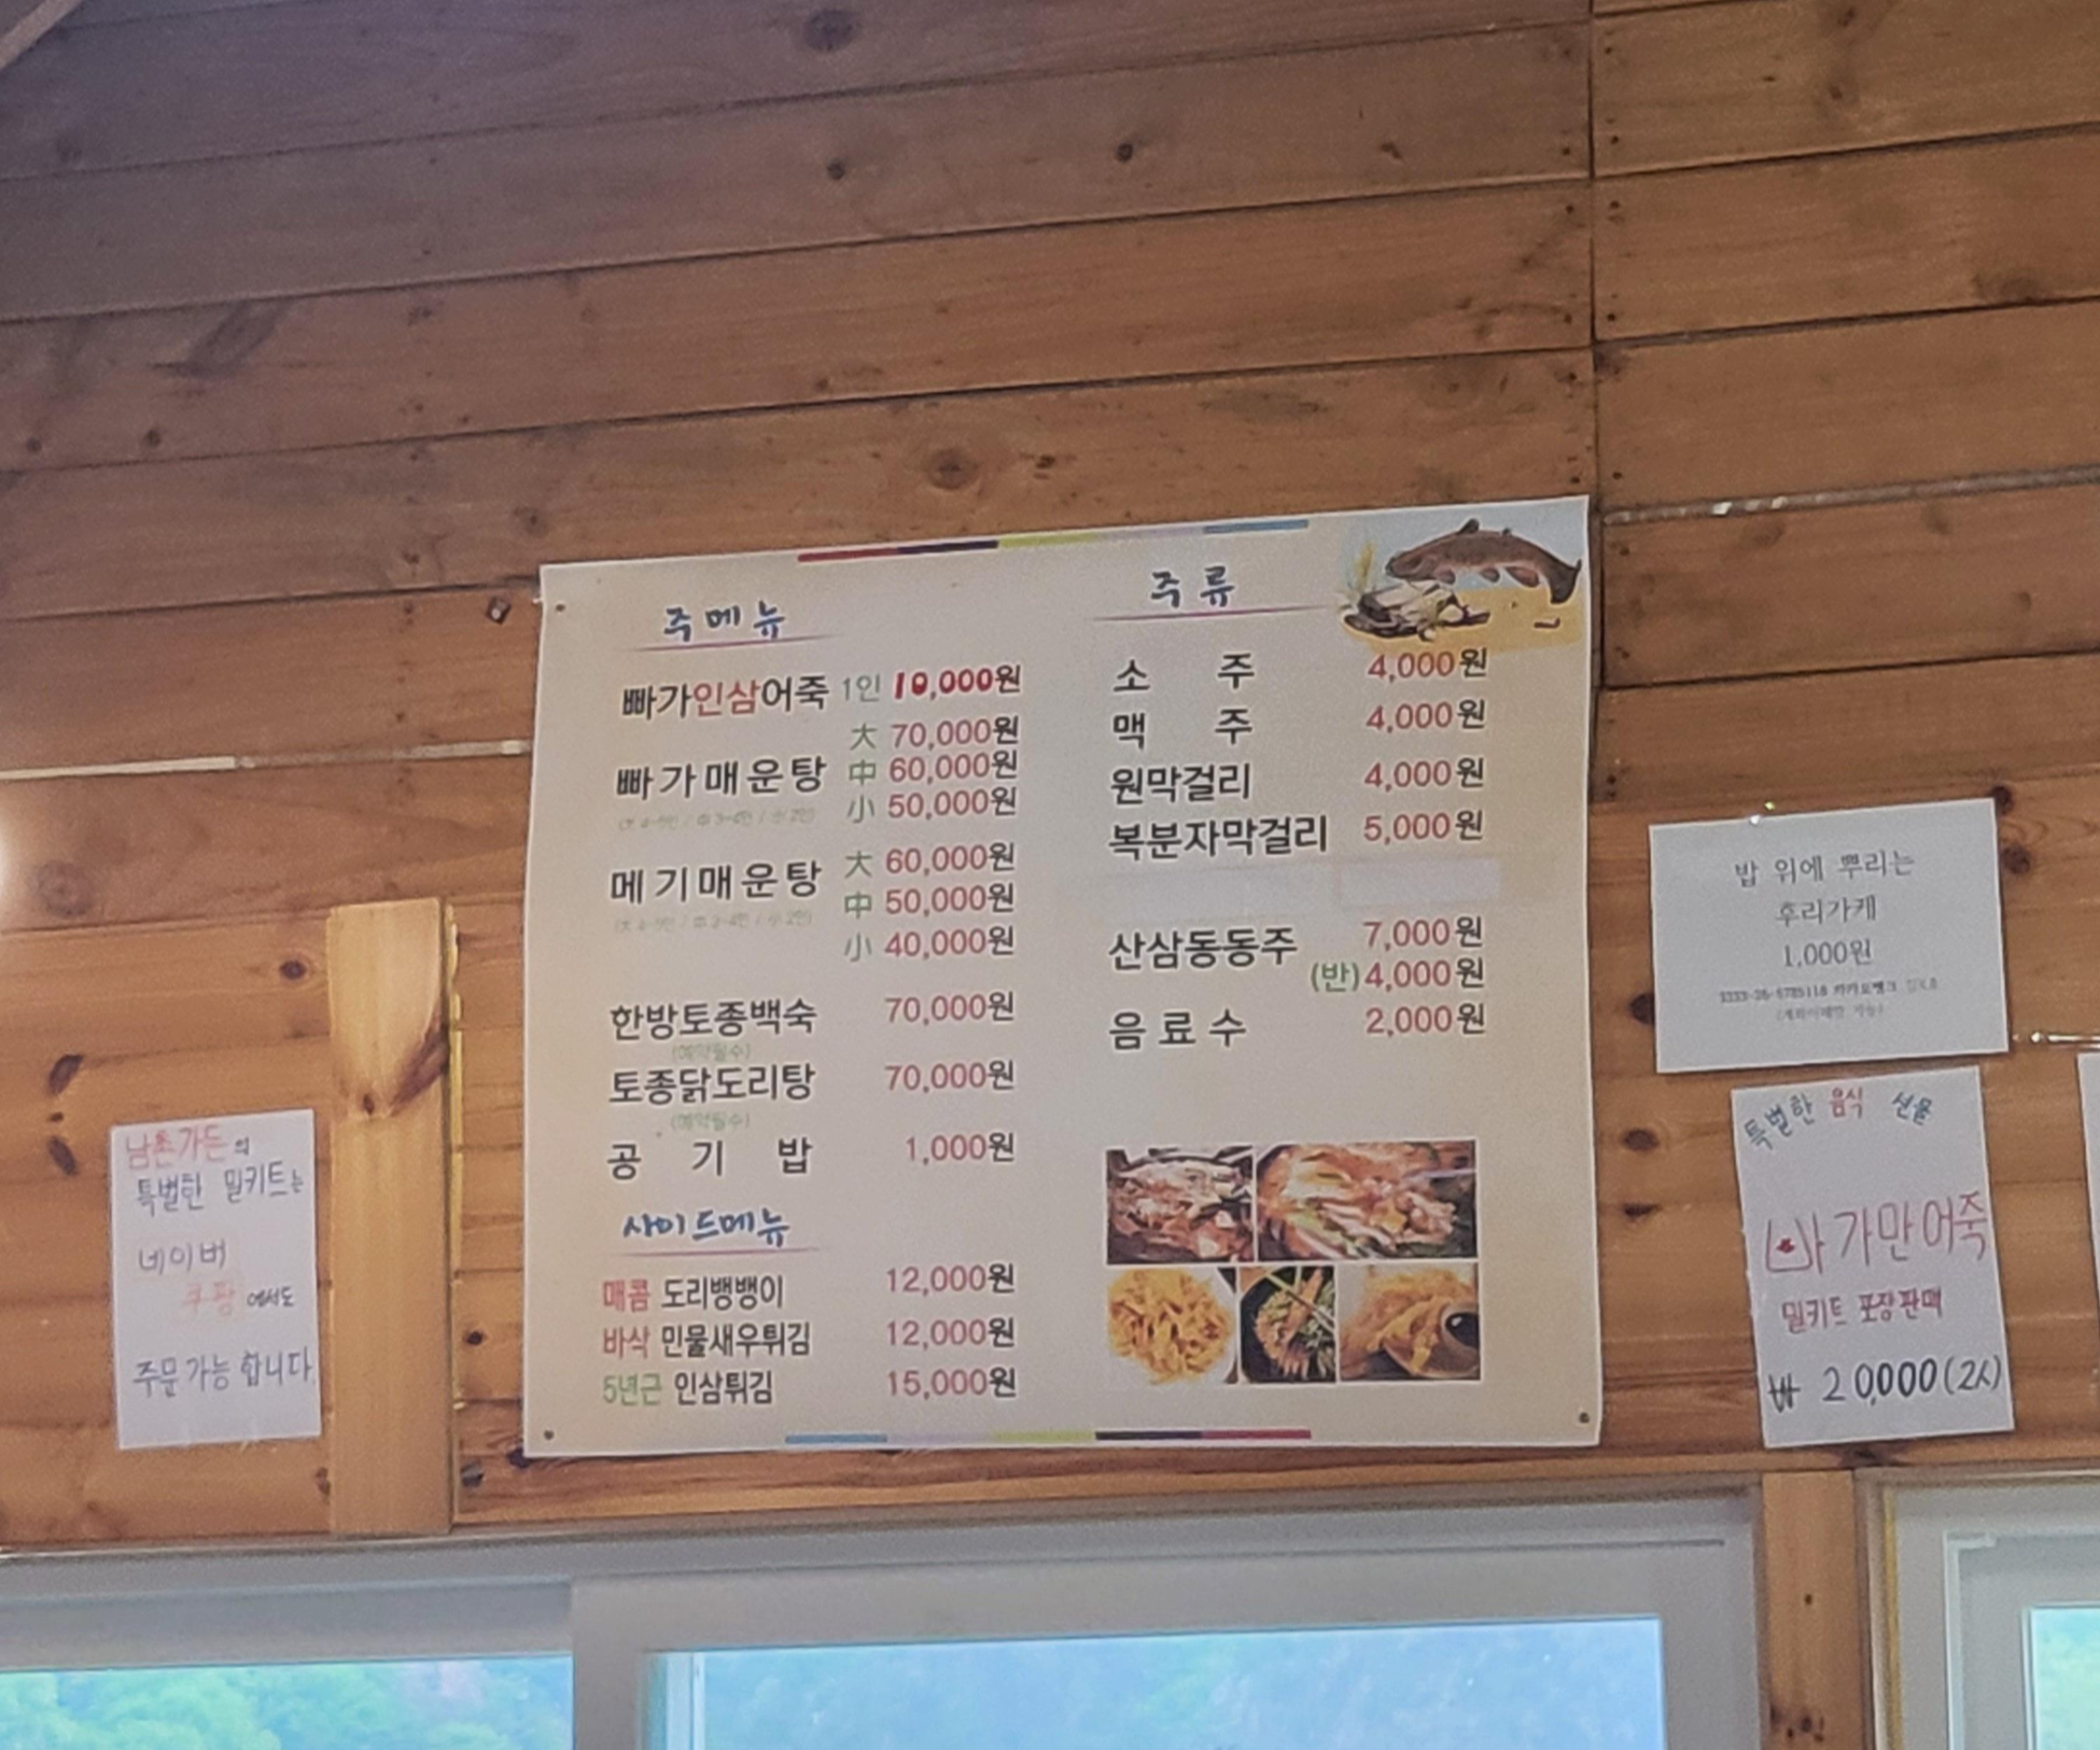 주메뉴
빠가인삼어죽 1인 10,000원
빠가매운탕
大 70,000원
中 60,000원
小 50,000원
(大 4~5인 / 中 3~4인 / 小 2인)
메기매운탕
大 60,000원
中 50,000원
小 40,000원
한방토종백숙 70,000원
(예약필수)
토종닭도리탕 70,000원
(예약필수)
공 기 밥 1,000원
사이드메뉴
매콤 도리뱅뱅이 12,000원
바삭 민물새우튀김 12,000원
5년근 인삼튀김 15,000원
주류
소 주 4,000원
맥 주 4,000원
원막걸리 4,000원
복분자막걸리 5,000원
산삼동동주 7,000원
(반) 4,000원
음료수 2,000원
남촌가든의
특별한 밀키트는
네이버
쿠팡 에서도
주문 가능 합니다
밥 위에 뿌리는
후리가케
1,000원
카카오뱅크
특별한 음식 선물
빠가만어죽
밀키트 포장판매
₩ 20,000 (2人)